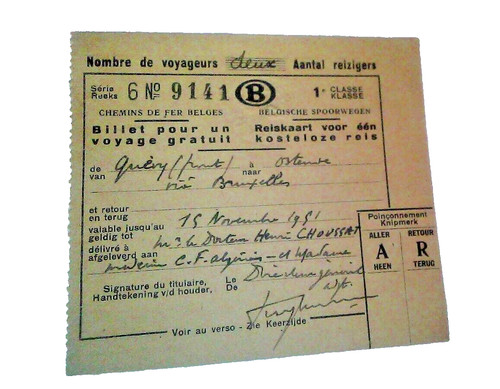 Nombre de voyageurs deux Aantal reizigers
Série Reeks 6 No 9141 B 1e CLASSE KLASSE
CHEMINS DE FER BELGES BELGISCHE SPOORWEGEN
Billet pour un voyage gratuit Reiskaart voor één kosteloze reis
de van Quévy (front) à naar Ostende
via Bruxelles
et retour en terug
valable jusqu'au geldig tot 15 Novembre 1951
délivré à afgeleverd aan Mr le Docteur Henri CHOUSSAT
médecin C.F. algériens et Madame
Signature du titulaire, Handtekening v/d houder, Le De Directeur général
Voir au verso - Zie Keerzijde
Poinçonnement Knipmerk
ALLER RETOUR
A R
HEEN TERUG